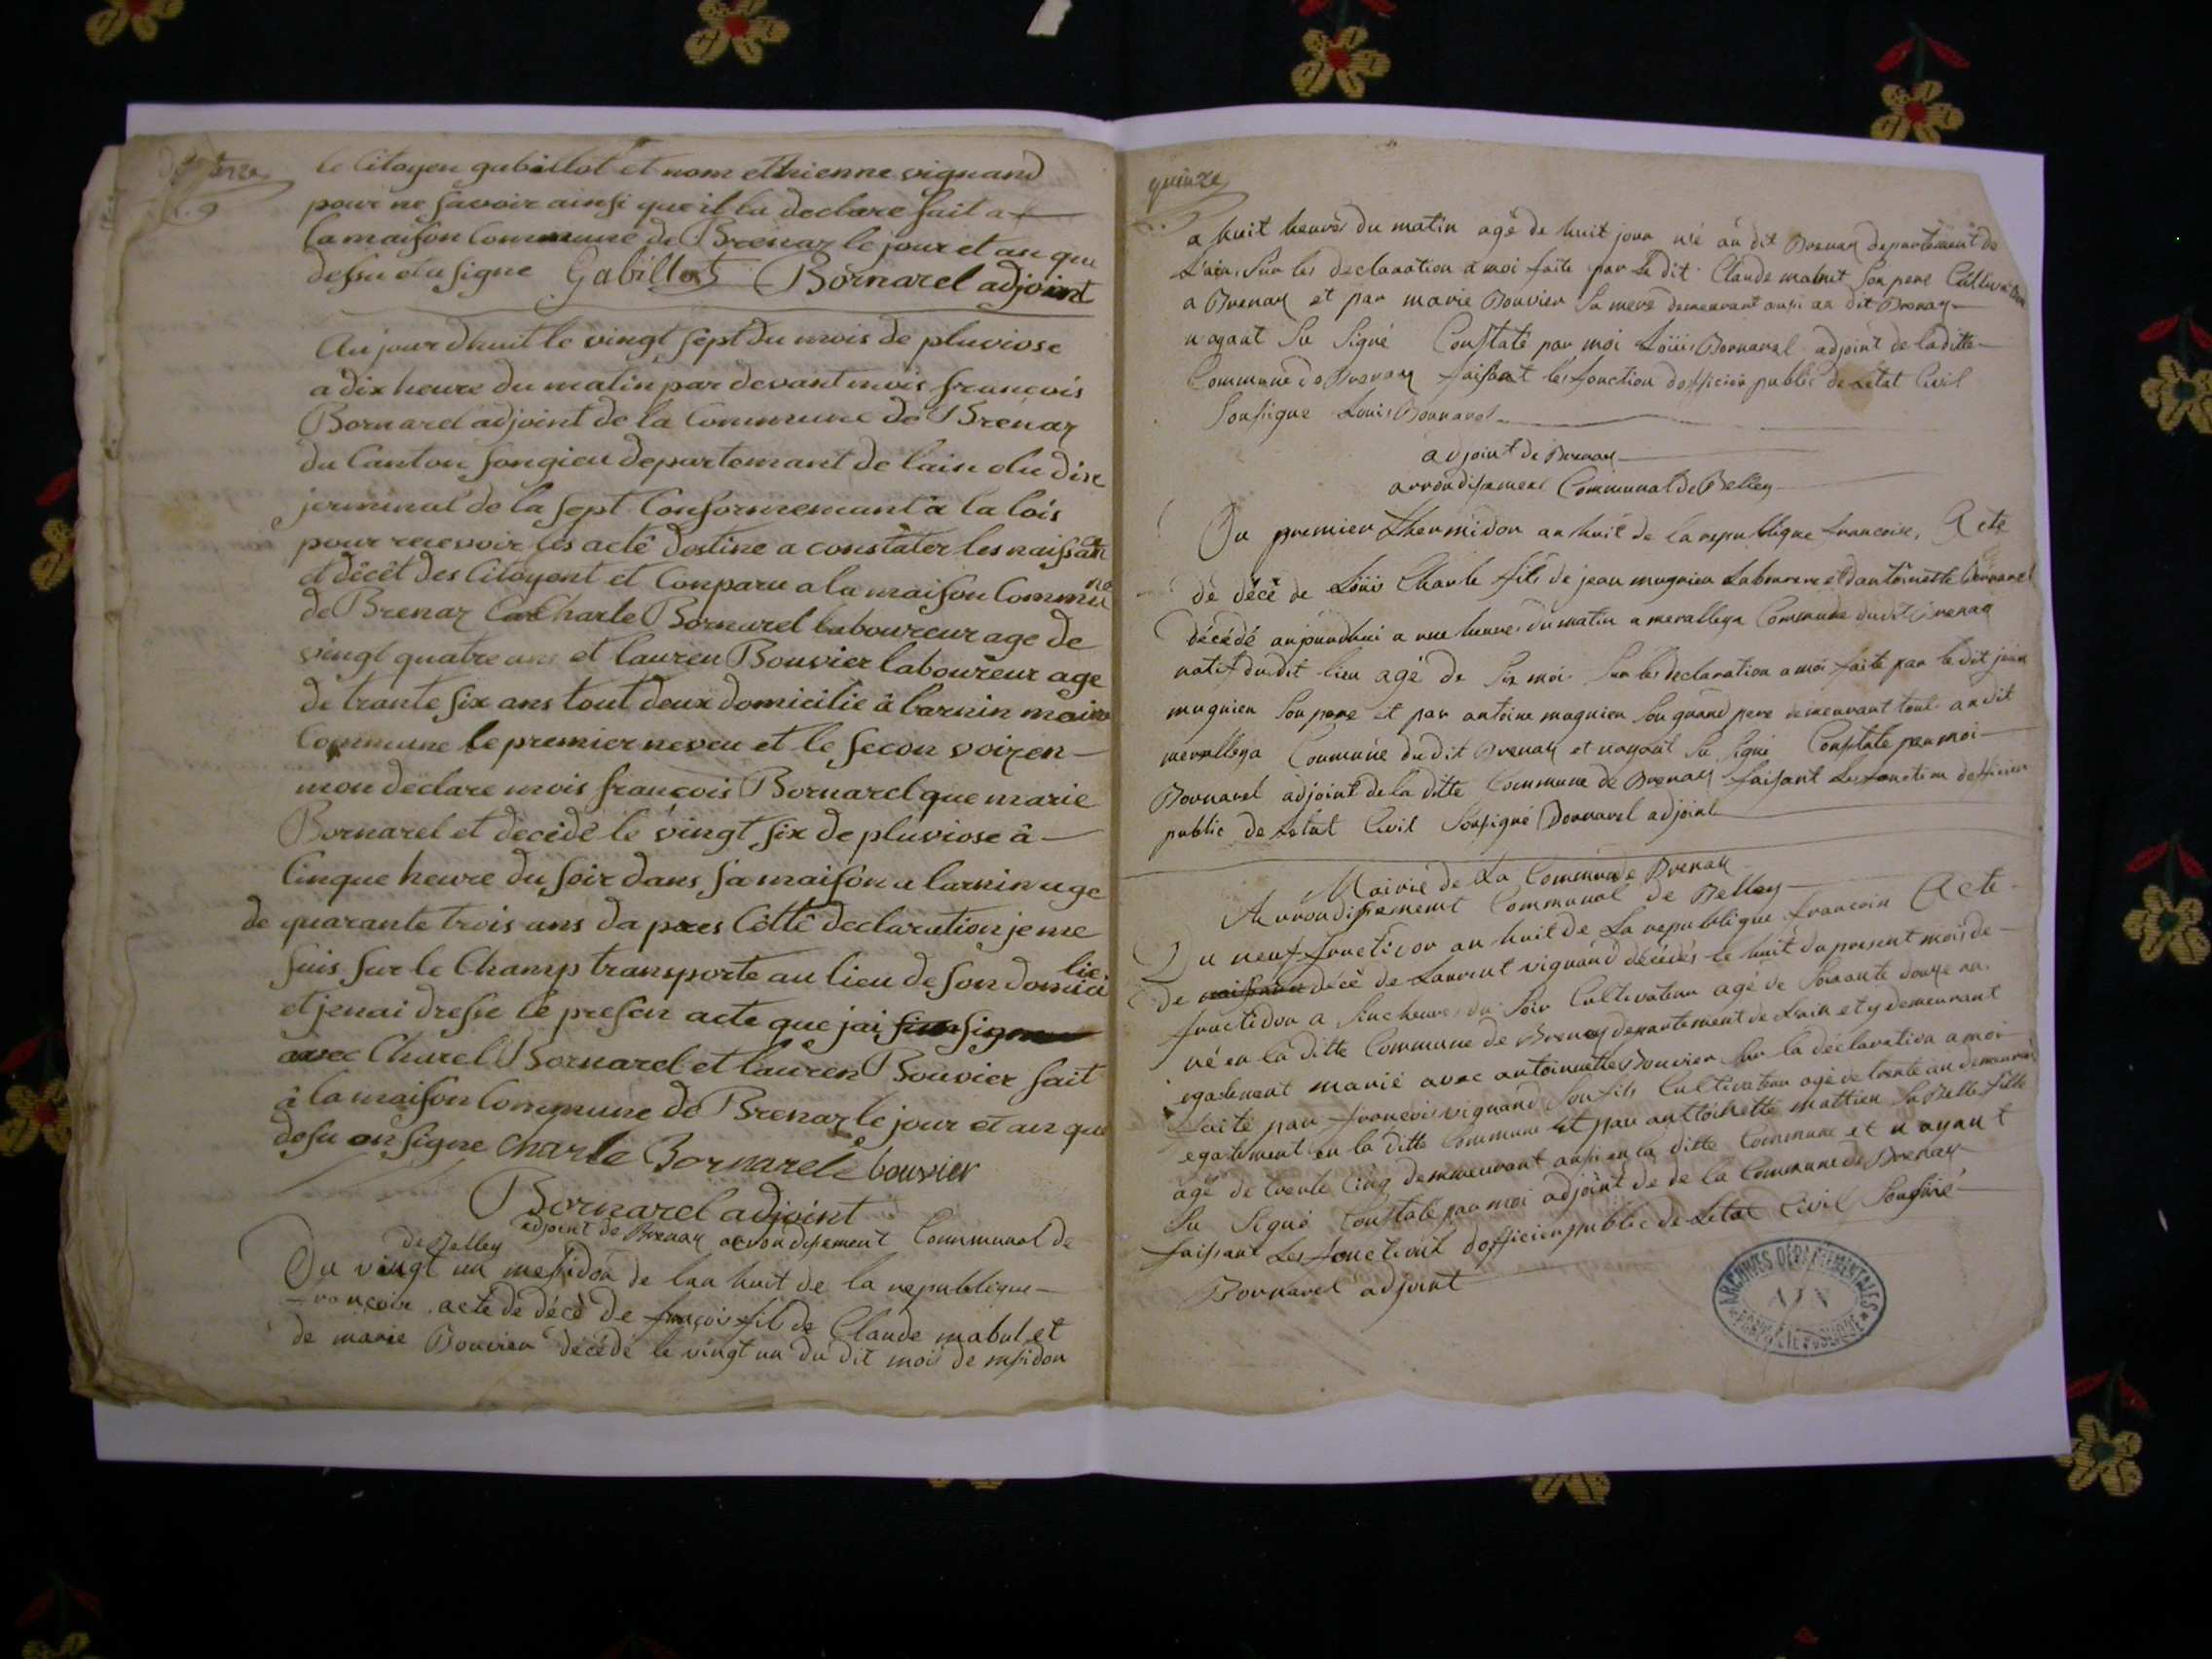 le Citoyen gabillot et nom ethienne vignand
pour ne savoir ainsi que il la declare fait a
la maison Commune de Brenaz le jour et an que
desu et a signe Gabillot Bornarel adjoint
Au jour dhuit le vingt sept du mois de pluviose
a dix heure du matin par devant mois françois
Bornarel adjoint de la Commune de Brenaz
du Canton songieu departemant de lain elu dix
jerminal de la sept Conformemant à la lois
pour recevoir les acte destine a constater les naissance
et décèt des Citoyent et Conparu a la maison Commune
de Brenaz Charle Bornarel laboureur age de
vingt quatre ans et lauren Bouvier laboureur age
de trante six ans tout deux domicilie à larnin
Commune le premier neveu et le secon voizen
mon declare mois françois Bornarel que marie
Bornarel et decidé le vingt six de pluviose â
Cinque heure du soir dans sa maison a larnin age
de quarante trois ans da pres Cette declaration je me
suis sur le Champ transporte au lieu de son domicilie
et jenai dresse le presen acte que jai
avec Charel Bornarel et lauren Bouvier fait
â la maison Commune de Brenaz le jour et an que
desu on signe charle Bornarel bouvier
Bornarel adjoint
adjoint de Brenaz arrondisement Communal de
de Belley
Du vingt un mesidor de lan huit de la republique
françoise acte de décè de françois fils de Claude mabut et
de marie Bouvier décédé le vingt un du dit mois de mesidor
quinze
a huit heures du matin agé de huit jour né au dit Brenaz departement de
Lain, Sur les declaration a moi faite par le dit Claude mabut son pere Cultivateur
a Brenaz et par marie Bouvier sa mere demeurant ausi au dit Brenaz
nayant Su Signé Constaté par moi Loüis Bornarel adjoint de laditte
Commune de Brenaz faisant les fonction dofficier public de Letat Civil
Sousigne Louis Bornarel
adjoint de Brenaz
arrondisement Communal de Belley
Du premier thermidor an huit de la republique francoise, Acte
de décè de Loüis Charle fils de jean mugnier Laboureur et dantoinette Bornarel
décédé aujourdhui a une heure du matin a meralleya Commune du dit Brenaz
natif du dit lieu agé de Six moi Sur les declaration a moi faite par le dit jean
mugnier Son pere et par antoine mugnier Son grand pere demeurant tout au dit
meralleya Commune du dit Brenaz et nayant Su Signé Constate par moi
Bornarel adjoint de la ditte Commune de Brenaz faisant Les fonction dofficier
public de Letat Civil Sousigné Bornarel adjoint
Mairie de La Commune de Brenaz
Arrondisement Communal de Belley
Du neuf fructidor an huit de La republique francoise Acte
de naissance décè de Laurent vignand décédés le huit du present mois de
fructidor a Sinc heures du Soir Cultivateur agé de Soixante douze an
né en la ditte Commune de Brenaz departement de Lain et y demeurant
egalement marié avec antoinette Bouvier Sur la déclaration a moi
faite par françois vignand Son fils Cultivateur agé de trente an demeurant
egalement en la ditte Commune et par anttoinette mattieu Sa Belle fille
agé de trente Cinq demmeurant ausi en la ditte Commune et n'ayant
Su Signé Constaté par moi adjoint de de la Commune de Brenaz
faisant Les fonctions dofficier public de Letat Civil Sousiné
Bornarel adjoint
ARCHIVES DÉPARTEMENTALES
AIN